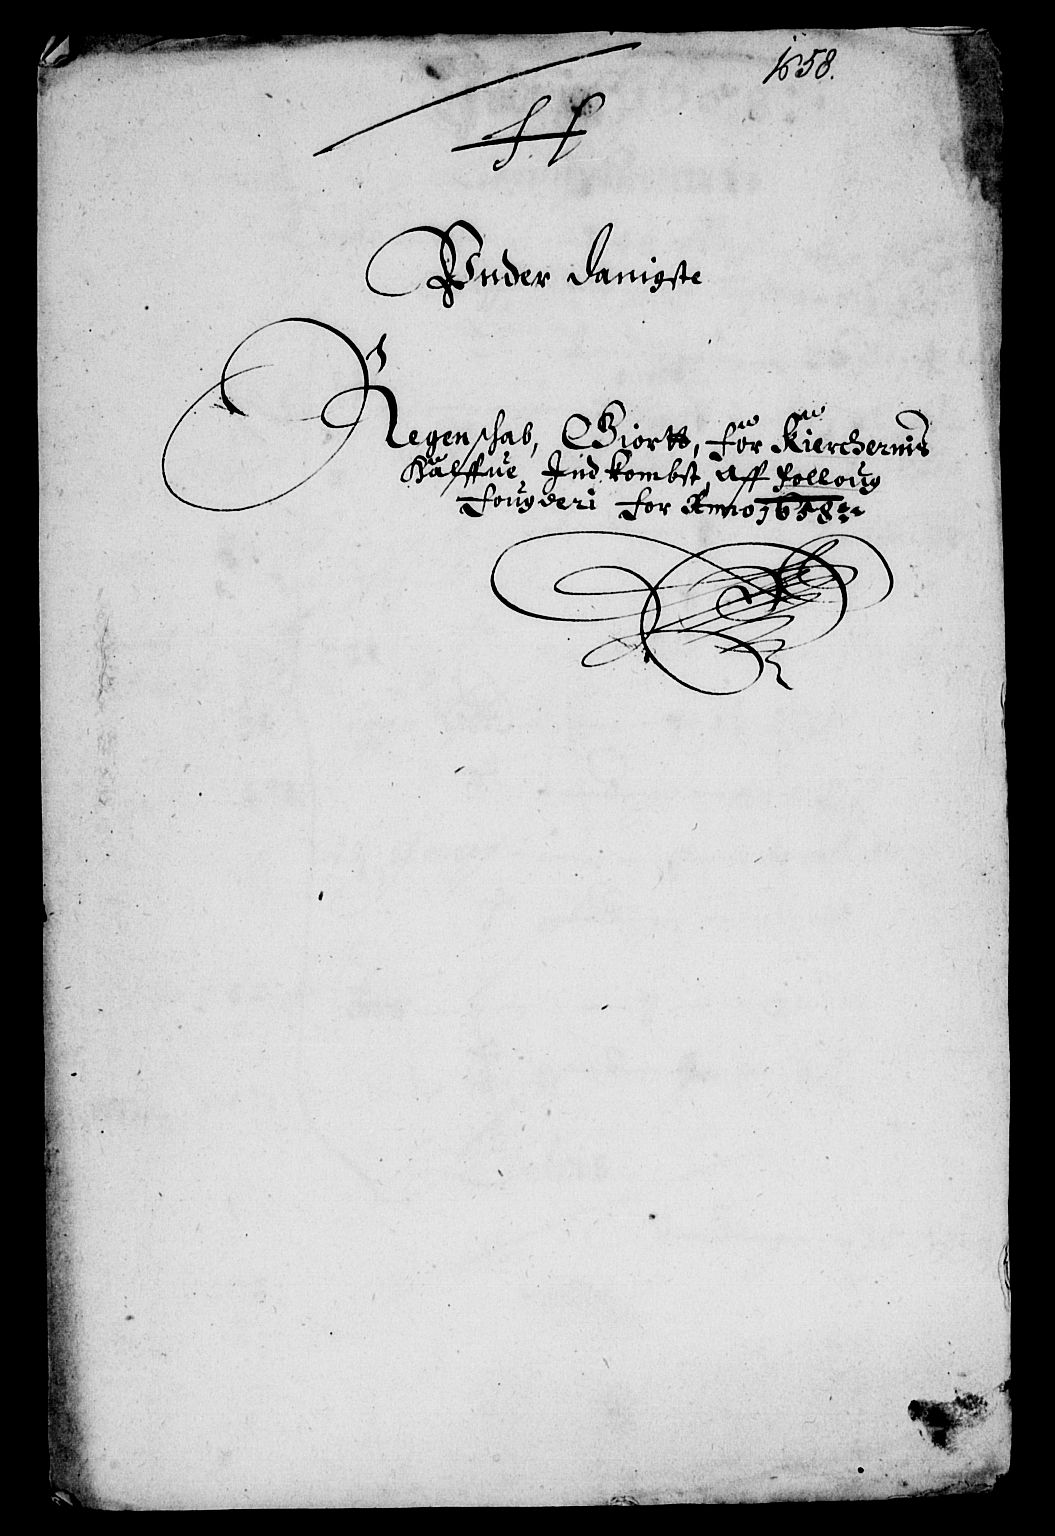 1658.
Vnder danigste
Regenschab, Giortt, for Kierchernis
Halffue Indkombst, Aff Folloug
Fougderi for Anno 1658